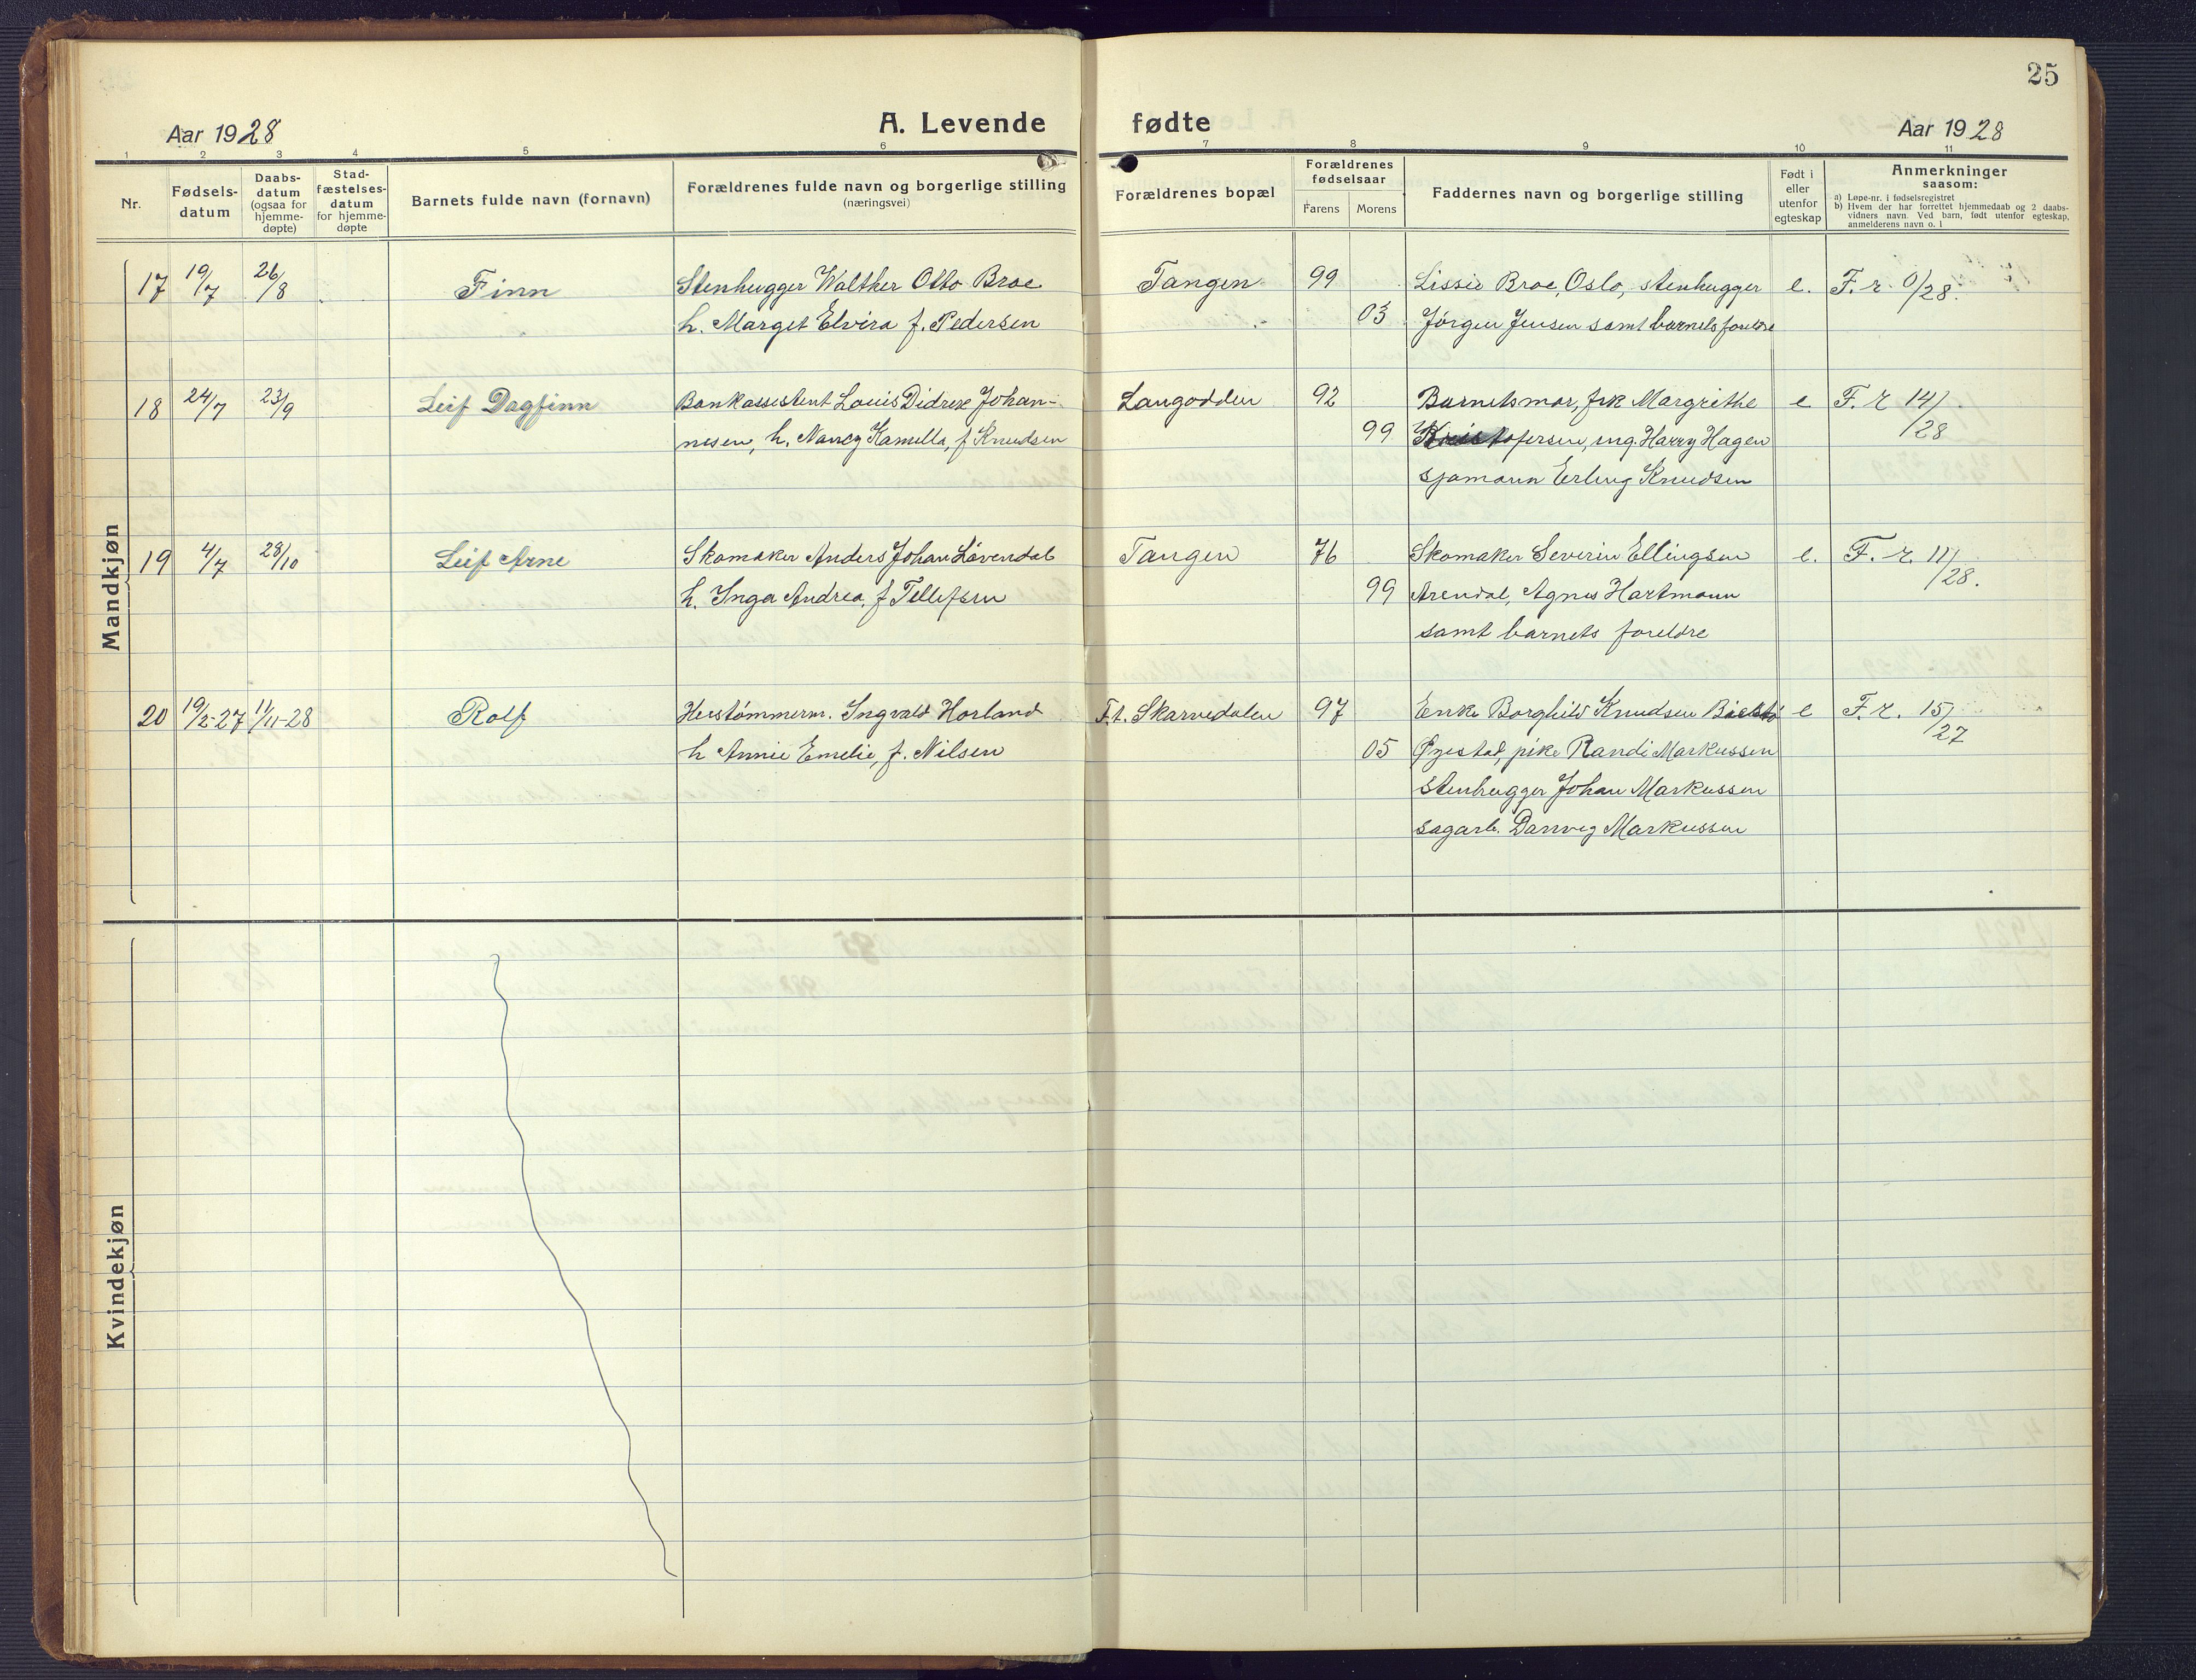 25
Aar 1928
A. Levende fødte
Aar 1928
1 2 3 4 5 6 7 8 9 10 11
Nr.
Fødsels-
datum
Daabs-
datum
(ogsaa for
hjemme-
døpte)
Stad-
fæstelses-
datum
for hjemme-
døpte
Barnets fulde navn (fornavn)
Forældrenes fulde navn og borgerlige stilling
(næringsvei)
Forældrenes bopæl
Forældrenes
fødselsaar
Farens Morens
Faddernes navn og borgerlige stilling
Født i
eller
utenfor
egteskap
Anmerkninger
saasom:
a) Løpe-nr. i fødselsregistret
b) Hvem der har forrettet hjemmedaab og 2 daabs-
vidners navn. Ved barn, født utenfor egteskap,
anmelderens navn o. l
Mandkjøn
17 19/7 26/8 Finn Stenhugger Walther Otto Broe Tangen 99 Lissie Broe, Oslo, stenhugger e. F. r. 9/28.
h. Marget Elvira f. Pedersen 03 Jørgen Jensen samt barnets foreldre
18 24/7 23/9 Leif Dagfinn Bankassistent Louis Didrik Johan- Langodden 92 Barnets mor, frk Margrethe e F. r 14/
nesen, h. Nancy Kamilla, f Knudsen 99 Kristofersen, ing. Harry Hagen /28
sjømann Erling Knudsen
19 4/7 28/10 Leif Arne Skomaker Anders Johan Løvendal Tangen 76 Skomaker Severin Ellingsen e. F. r. 11/
h. Inga Andrea, f Tellefsen 99 Arendal, Agnes Hartmann /28.
samt barnets foreldre
20 19/2-27 11/11-28 Rolf Hustømmerm. Ingvald Horland F.t. Skarvedalen 97 Enke Borghild Knudsen e F. r. 15/
h Annie Emelie, f. Nilsen 05 Øyestad, pike Randi Markussen /27
stenhugger Johan Markussen
sagarb. Danveg Markussen
Kvindekjøn